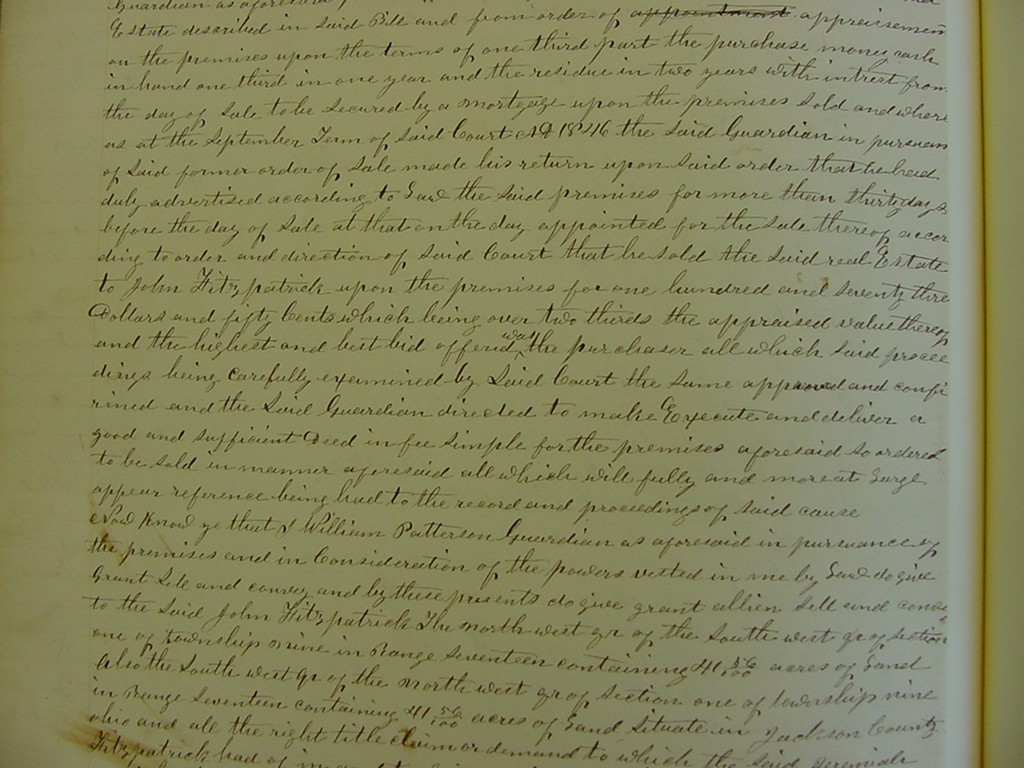 Guardian as aforesaid
Estate described in said Bill and from order of appointment appraisemen
on the premises upon the terms of one third part the purchase money cash
in hand one third in one year and the residue in two years with intrest from
the day of sale to be secured by a mortgage upon the premises sold and where
as at the September Term of said Court AD the said Guardian in pursuan
of said former order of sale made his return upon said order that he had
duly advertised according to Law the said premises for more than thirty days
before the day of sale at that on the day appointed for the sale thereof accor
ding to order and direction of said Court that he sold the said real Estate
to John Fitzpatrick upon the premises for one hundred and seventy three
Dollars and fifty Cents which being over two thirds the appraised value thereof
and the highest and best bid offered was the purchaser all which said procee
dings being carefully examined by said Court the same approved and confi
rmed and the said Guardian directed to make Execute and deliver a
good and sufficient Deed in fee simple for the premises aforesaid so ordered
to be sold in manner aforesaid all which will fully and more at Large
appear reference being had to the record and proceedings of said cause
Now Know ye that I William Patterson Guardian as aforesaid in pursuance of
the premises and in Consideration of the powers vested in me by Law do give
Grant Sell and convey and by these presents do give grant allien sell and conve
to the said John Fitzpatrick The North west qr of the South west qr of section
one of township nine in Range seventeen containing 41 56/100 acres of Land
Also the South west qr of the North west qr of section one of township nine
in Range seventeen containing 41 56/100 acres of Land Situate in Jackson County
ohio and all the right title claim or demand to which the said Jeremiah
Fitzpatrick had of